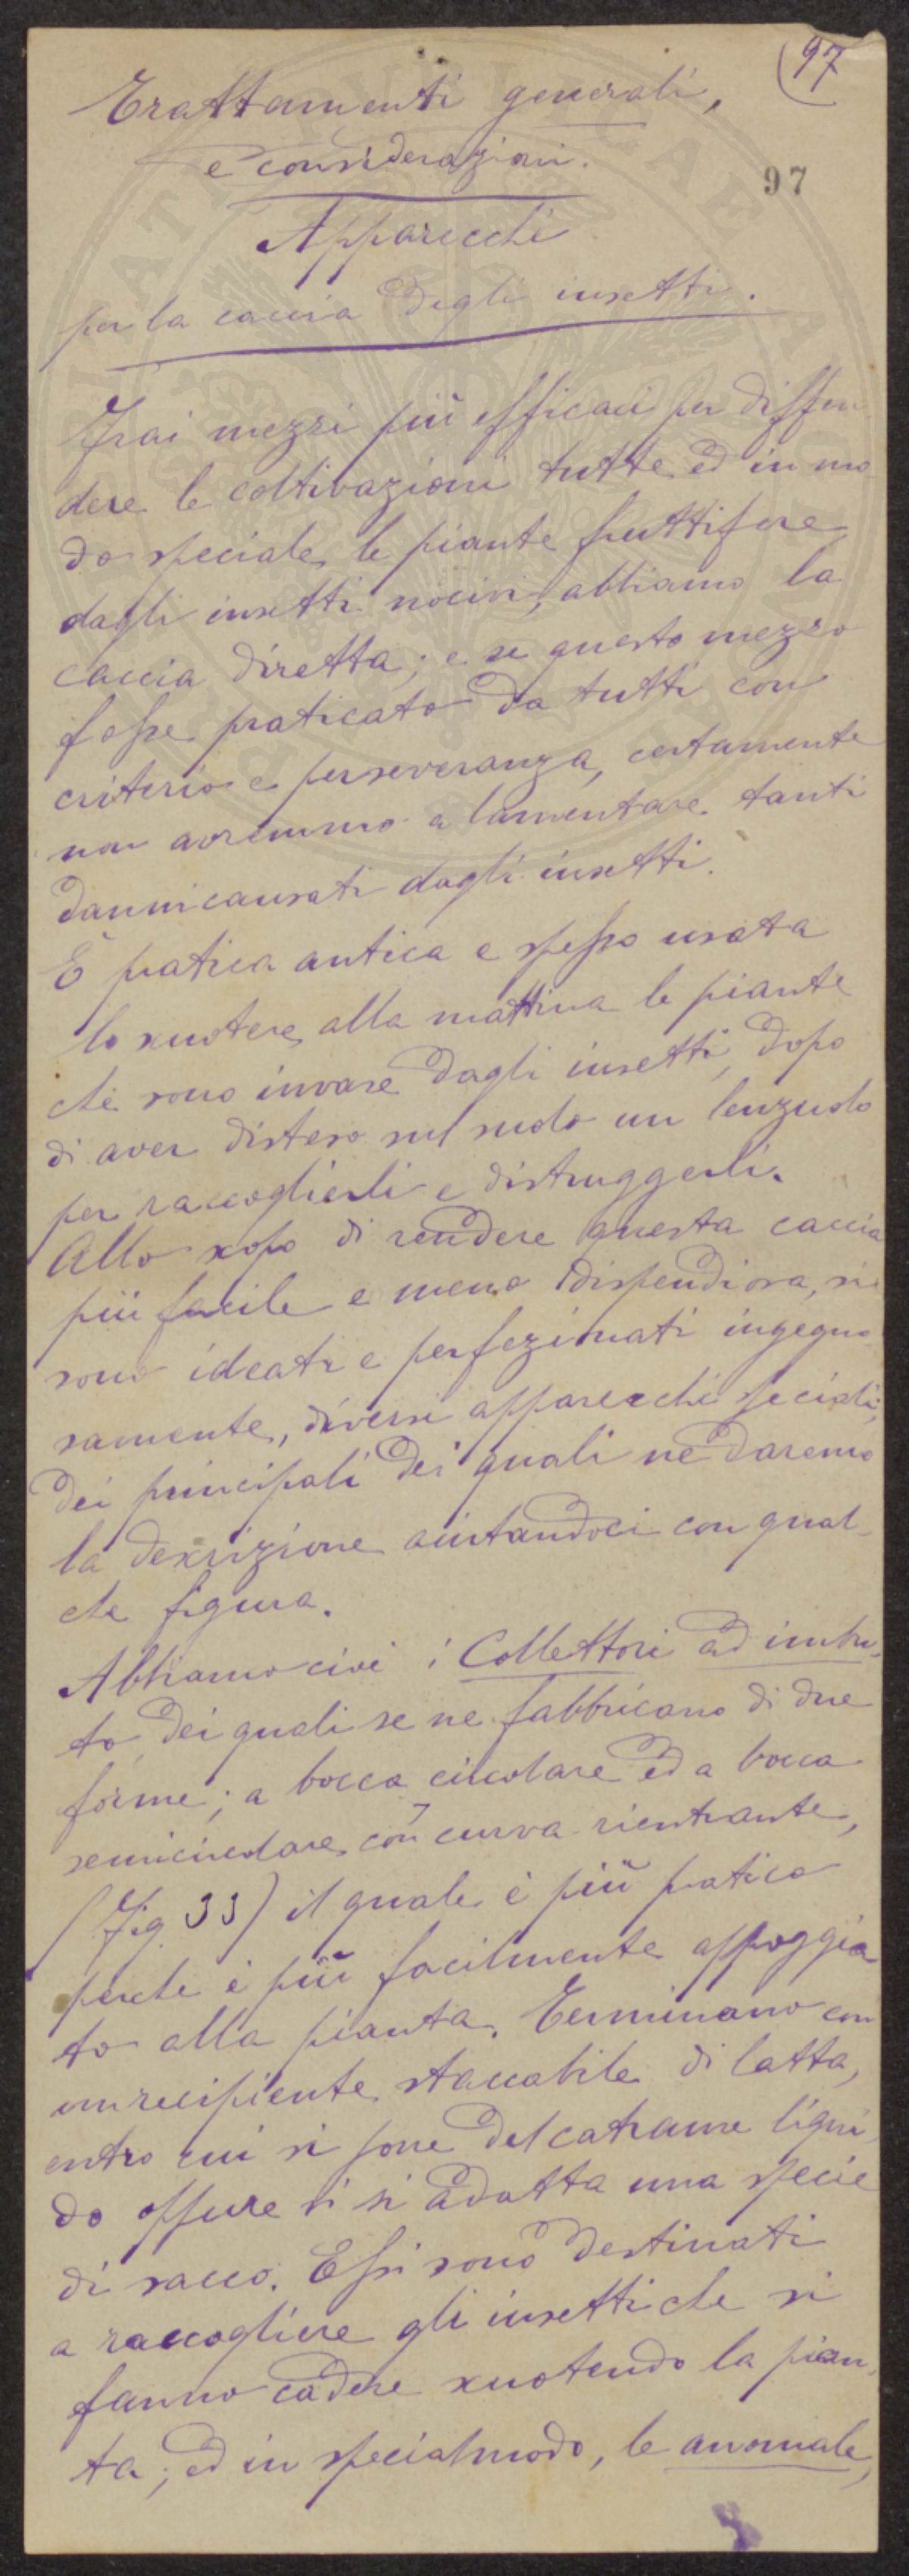 (97
Trattamenti generali,
e considerazioni.
97
Apparecchi
per la caccia degli insetti.
Frai mezzi più efficaci per diffen
dere le coltivazioni tutte ed in mo
do speciale le piante fruttifere
dagli insetti nocivi, abbiamo la
caccia diretta; e se questo mezzo
fosse praticato da tutti con
criterio e perseveranza, certamente
non avremmo a lamentare tanti
danni causati dagli insetti.
È pratica antica e spesso usata
lo scuotere alla mattina le piante
che sono invase dagli insetti, dopo
di aver disteso sul suolo un lenzuolo
per raccoglierli e distruggerli.
Allo scopo di rendere questa caccia
più facile e meno dispendiosa, si
sono ideati e perfezionati ingegno
samente, diversi apparecchi speciali,
dei principali dei quali ne daremo
la descrizione aiutandoci con qual-
che figura.
Abbiamo cioè i Collettori ad imbu-
to dei quali se ne fabbricano di due
forme; a bocca circolare ed a bocca
semicircolare con curva rientrante,
(Fig 33) il quale è più pratico
perche è più facilmente appoggia
to alla pianta. Terminano con
un recipiente staccabile di latta,
entro cui si pone del catrame liqui
do oppure vi si adatta una specie
di sacco. Essi sono destinati
a raccogliere gli insetti che si
fanno cadere scuotendo la pian-
ta; ed in specialmodo, le anomale,